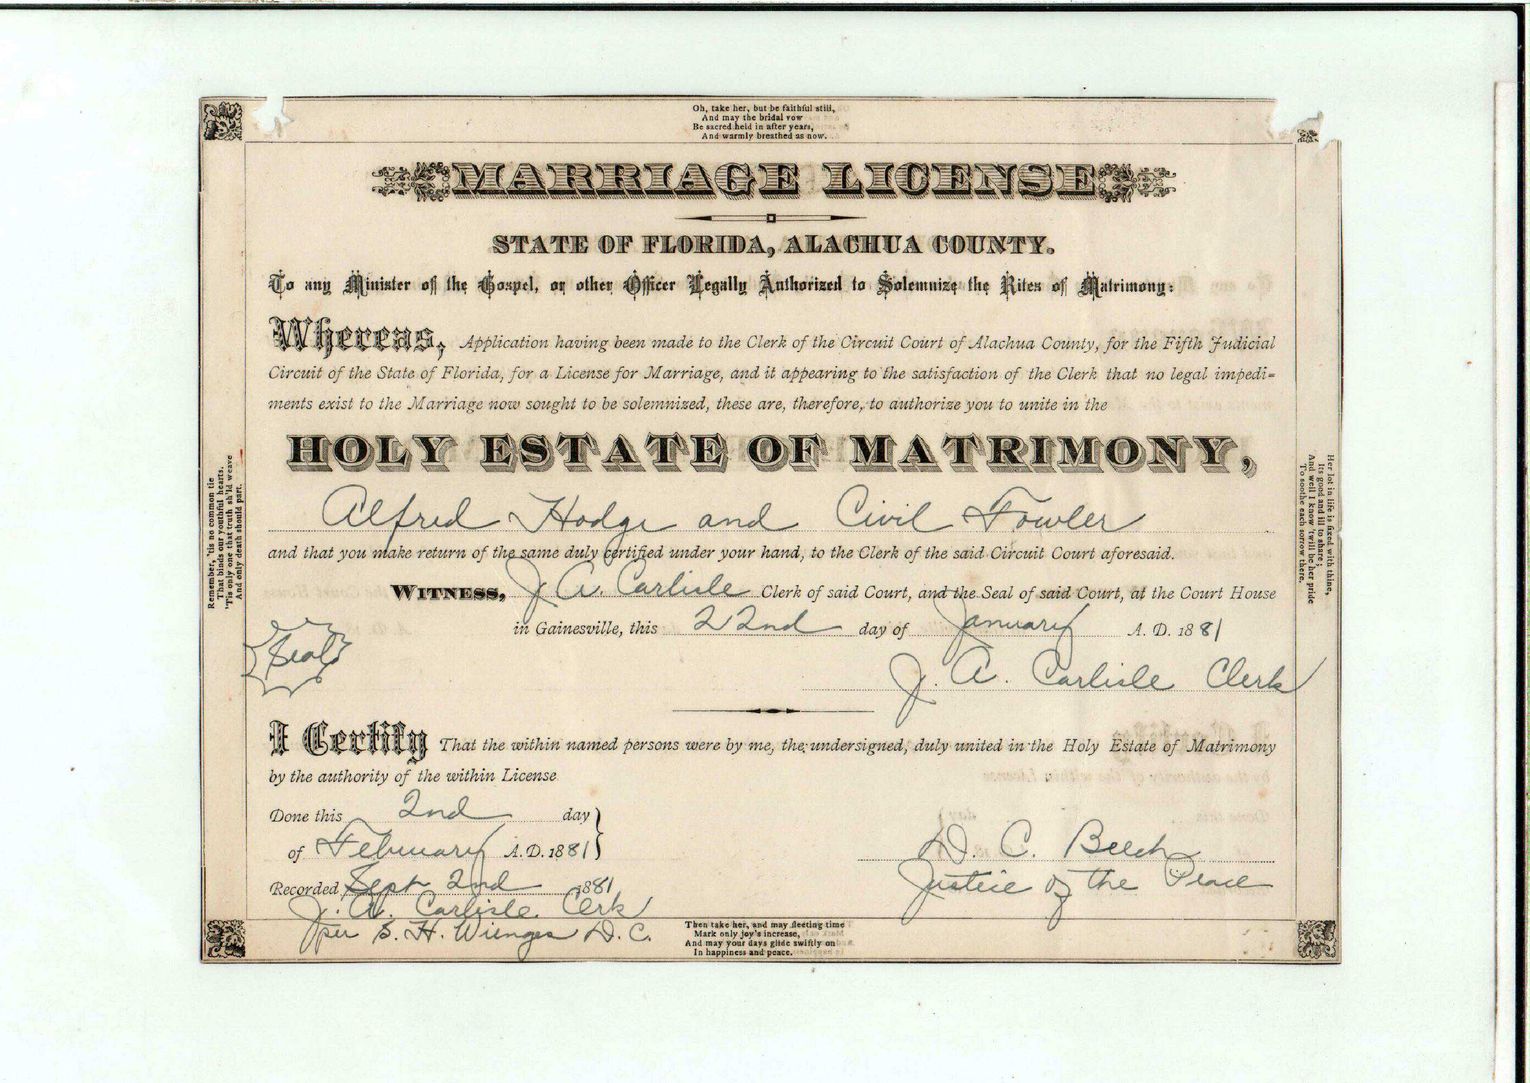 Oh, take her, but be faithful still,
And may the bridal vow
Be sacred held in after years,
And warmly breathed as now.
MARRIAGE LICENSE
STATE OF FLORIDA, ALACHUA COUNTY.
To any Minister of the Gospel, or other Officer Legally Authorized to Solemnize the Rites of Matrimony:
Whereas, Application having been made to the Clerk of the Circuit Court of Alachua County, for the Fifth Judicial
Circuit of the State of Florida, for a License for Marriage, and it appearing to the satisfaction of the Clerk that no legal impedi-
ments exist to the Marriage now sought to be solemnized, these are, therefore, to authorize you to unite in the
HOLY ESTATE OF MATRIMONY,
Alfred Hodge and Civil Fowler
and that you make return of the same duly certified under your hand, to the Clerk of the said Circuit Court aforesaid.
WITNESS, J. A. Carlisle Clerk of said Court, and the Seal of said Court, at the Court House
in Gainesville, this 22nd day of January A. D. 1881
Seal
J. A. Carlisle Clerk
I Certify That the within named persons were by me, the undersigned, duly united in the Holy Estate of Matrimony
by the authority of the within License
Done this 2nd day
of February A. D. 1881
D. C. Beech
Recorded Sept 2nd 1881
Justice of the Peace
J. A. Carlisle Clerk
per S. H. Wienges D. C.
Then take her, and may fleeting time
Mark only joy's increase,
And may your days glide swiftly on
In happiness and peace.
Remember, 'tis no common tie
That binds our youthful hearts,
'Tis only one that truth sh'ld weave
And only death should part.
Her lot in life is fixed with thine,
Its good and ill to share;
And well I know 'twill be her pride
To soothe each sorrow there.